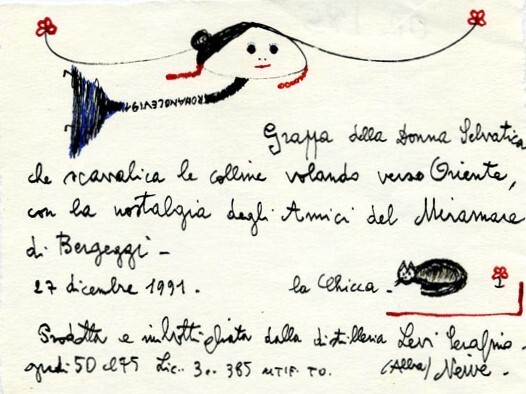 ROMANOLEVI91
Grappa della Donna Selvatica
che scavalica le colline volando verso Oriente,
con la nostalgia degli Amici del Miramare
di Bergeggi -
27 dicembre 1991. la Chicca -
Prodotta e imbottigliata dalla distilleria Levi Serafino -
gradi 50 cl 75 Lic. 30. 385 UTIF. TO. (Alba) Neive -